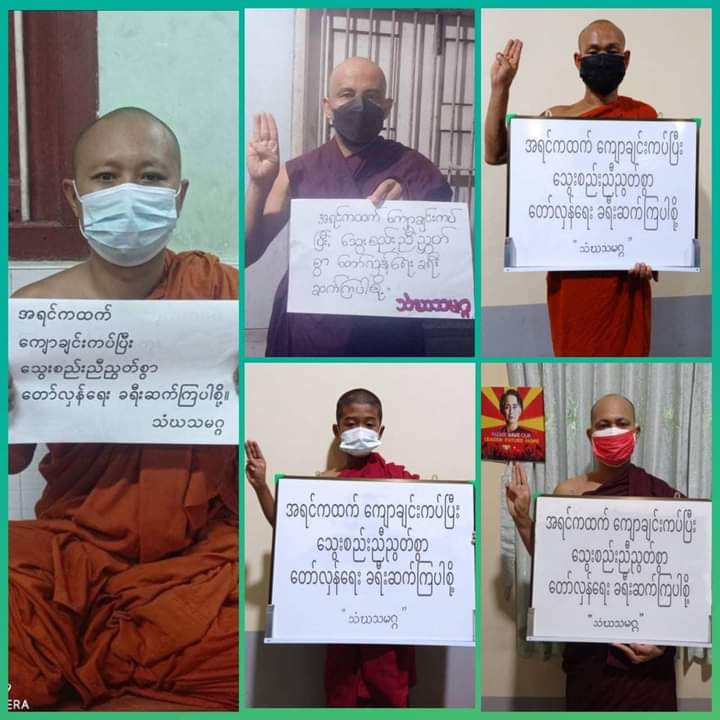 အရင်ကထက်
ကျောချင်းကပ်ပြီး
သွေးစည်းညီညွတ်စွာ
တော်လှန်ရေး ခရီးဆက်ကြပါစို့။
သံဃသမဂ္ဂ
အရင်ကထက် ကျောချင်းကပ်
ပြီး သွေးစည်းညီညွတ်
စွာ တော်လှန်ရေး ခရီး
ဆက်ကြပါစို့
သံဃသမဂ္ဂ
အရင်ကထက် ကျောချင်းကပ်ပြီး
သွေးစည်းညီညွတ်စွာ
တော်လှန်ရေး ခရီးဆက်ကြပါစို့
"သံဃသမဂ္ဂ"
အရင်ကထက် ကျောချင်းကပ်ပြီး
သွေးစည်းညီညွတ်စွာ
တော်လှန်ရေး ခရီးဆက်ကြပါစို့
"သံဃသမဂ္ဂ"
PLEASE SAVE OUR
LEADER FUTURE HOPE
အရင်ကထက် ကျောချင်းကပ်ပြီး
သွေးစည်းညီညွတ်စွာ
တော်လှန်ရေး ခရီးဆက်ကြပါစို့
"သံဃသမဂ္ဂ"